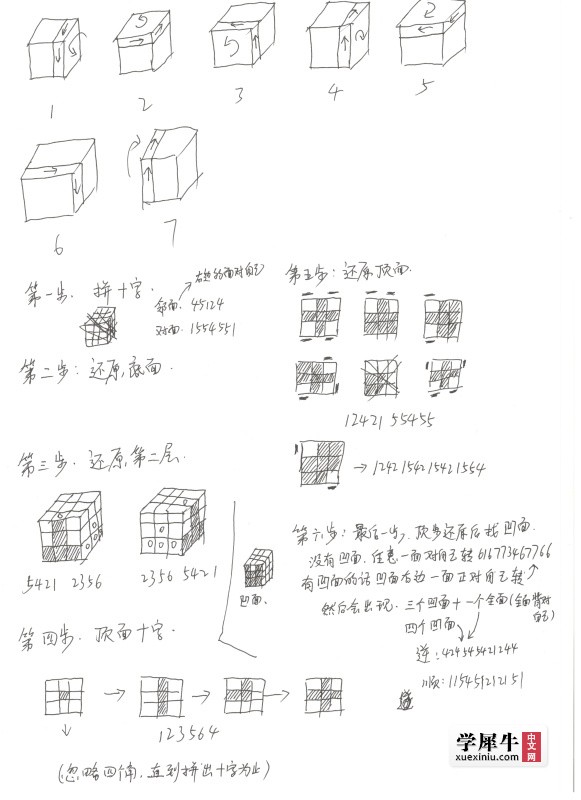 5
5
2
1
2
3
4
5
6
7
第一步. 拼十字.
邻面. 45124
对面. 1554551
第二步：还原底面.
第三步. 还原第二层.
5421 2356
2356 5421
凹面.
第四步. 顶面十字.
123564
(忽略四个角, 直到拼出十字为止)
第五步：还原顶面.
12421 55455
→ 1242154215421554
第六步：最后一步, 顶多还原后找凹面.
没有凹面. 任意一面对自己转
有凹面的话凹面右边一面正对自己转
然后会出现. 三个凹面 + 一个全面(全面背对自己)
四个凹面
逆: 424545421244
顺: 115451212151
学犀牛
中文网
xuexiniu.com